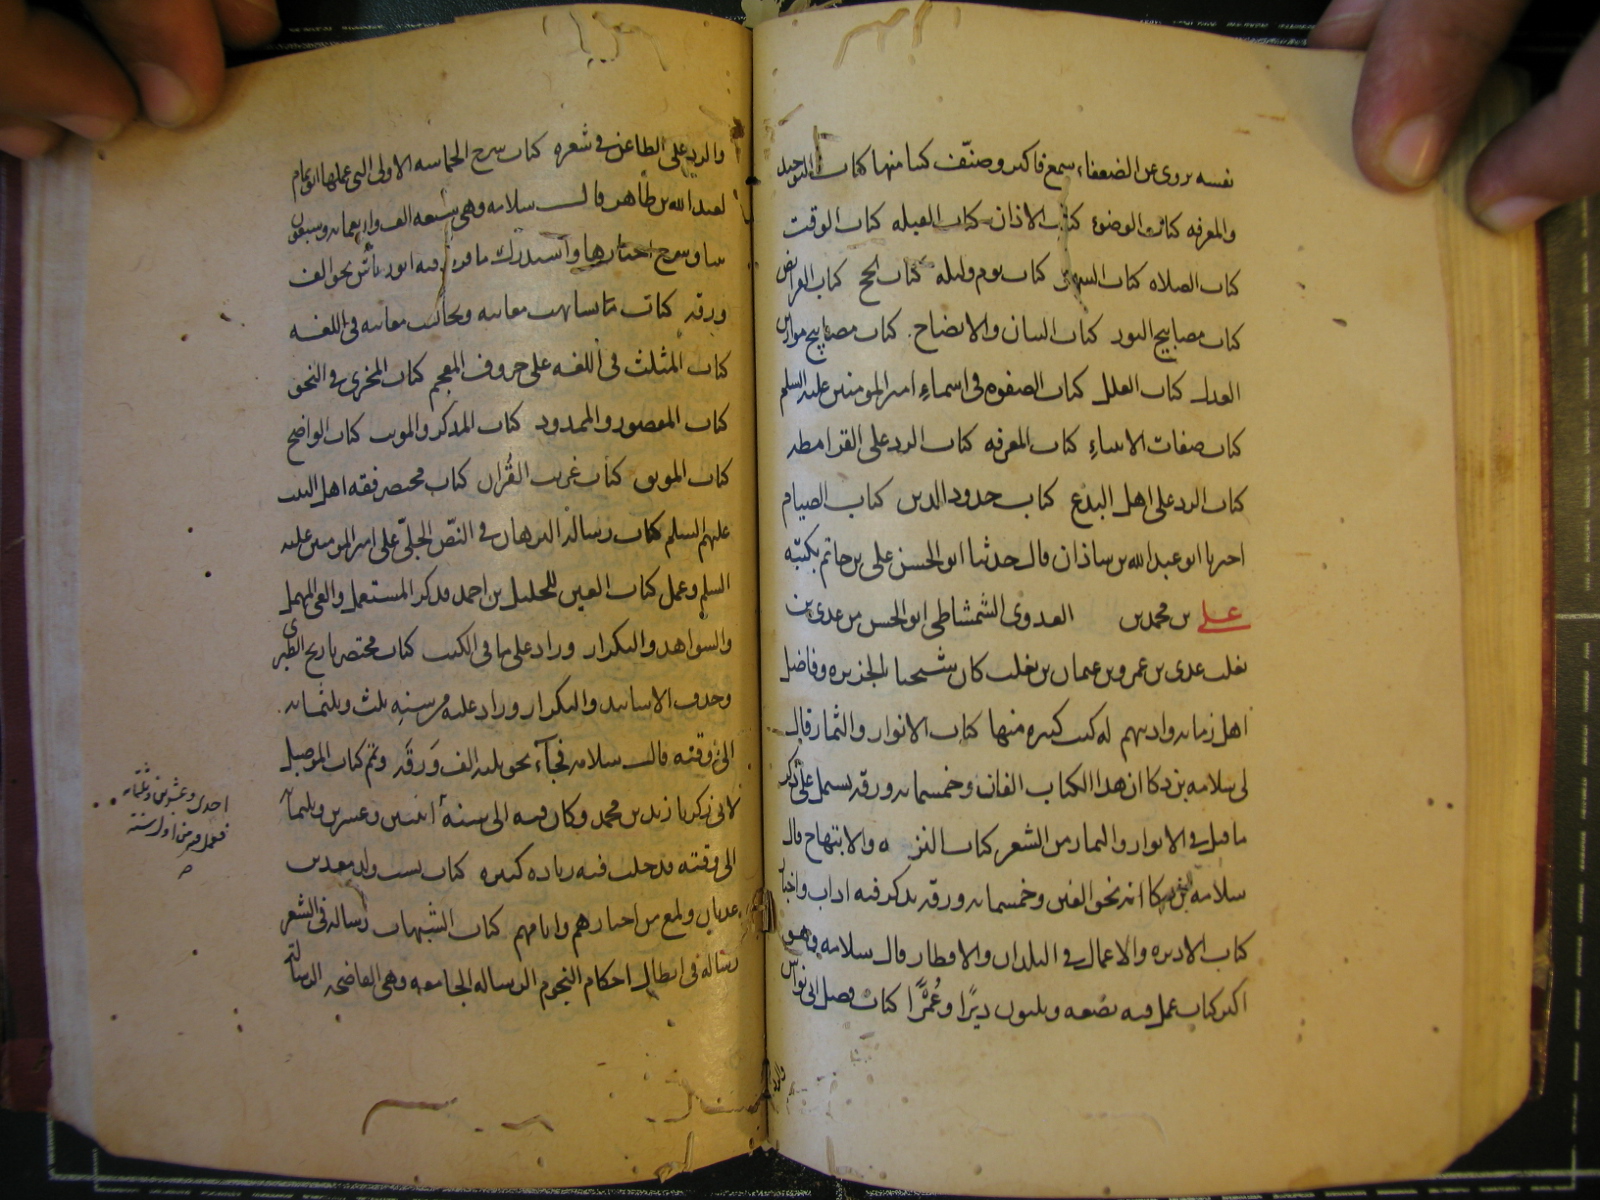 نفسه يروى عن الضعفاء سمع فاكثر وصنّف كتبا منها كتاب التوحيد
والمعرفه كتاب الوضوء كتاب الاذان كتاب القبله كتاب الوقت
كتاب الصلاه كتاب السهو كتاب يوم وليله كتاب الحج كتاب الفرايض
كتاب مصابيح النور كتاب البيان والايضاح كتاب مصابيح موازين
العدل كتاب العلل كتاب الصفوه فى اسماء امير المومنين عليه السلم
كتاب صفات الانبياء كتاب المعرفه كتاب الرد على القرامطه
كتاب الرد على اهل البدع كتاب حدود الدين كتاب الصيام
اخبرنا ابو عبدالله بن شاذان قال حدثنا ابو الحسن على بن حاتم بكتبه
على بن محمد بن العدوى الشمشاطى ابو الحسن من عدى بن
تغلب عدى بن عمرو بن عثمان بن تغلب كان شيخنا بالجزيره وفاضل
اهل زمانه واديبهم له كتب كثيره منها كتاب الانوار والثمار قال
لى سلامه بن دكا ان هذا الكتاب الفان وخمسمائه ورقه يشمل على ذكر
ما قيل فى الانوار والثمار من الشعر كتاب النزه والابتهاج قال
سلامه بن دكا انه نحو الفين وخمسمائه ورقه يذكر فيه اداب واخبار
كتاب الاديره والاعمال فى البلدان والاقطار قال سلامه وهو
اكبر كتاب عمل فيه بضعه وثلثون ديرًا وعُمرًا كتاب فضل ابى نواس
والرد على الطاعن فى شعره كتاب شرح الحماسه الاولى التى عملها ابو تمام
لعبدالله بن طاهر قال سلامه وهى تسعه الف واربعمائه وسبعون
بيتا وشرح اخبارها واستدرك ما فرط فيه ابو رياش نحو الف
ورقه كتاب ما تشابهت معانيه وتخالف معانيه فى اللغه
كتاب المثلث فى اللغه على حروف المعجم كتاب المجزى فى النحو
كتاب المقصور والممدود كتاب المذكر والمونث كتاب الواضح
كتاب الموثق كتاب غريب القُران كتاب مختصر فقه اهل البيت
عليهم السلم كتاب رسالة البرهان فى النّص الجلّى على امير المومنين عليه
السلم وعمل كتاب العين للخليل بن احمد فذكر المستعمل والغى المهمل
والشواهد والتكرار وزاد على ما فى الكتب كتاب مختصر تاريخ الطبرى
وحذف الاسانيد والتكرار وزاد عليه من سنه ثلث وثلثمائه
الى وقته قال سلامه فجاء نحو ثلثه الف وَرَقَه وتمّم كتاب الموصل
لابى زكريا زيد بن محمد وكان فيه الى سنة اثنين وعشرين وثلثمائه
الى وقته فدخلت فيه زياده كثيره كتاب نسب ولد معد بن
عدنان ولمع من اخبارهم وايامهم كتاب الشبهات رسالة فى الشعر
رسالة فى ابطال احكام النجوم الرساله الجامعه وهى الفاضحه الرسالة
احدى وعشرين وثلثمائه
فعمل فيه من اول سنة